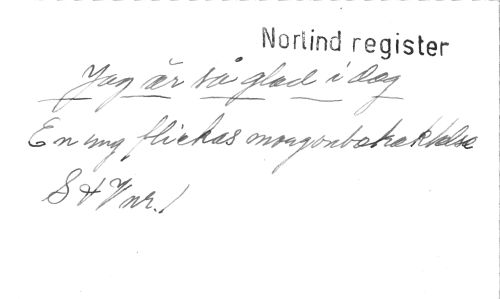 Norlind register
Jag är så glad i dag
En ung flickas morgonbetraktelse
S & V nr. 1